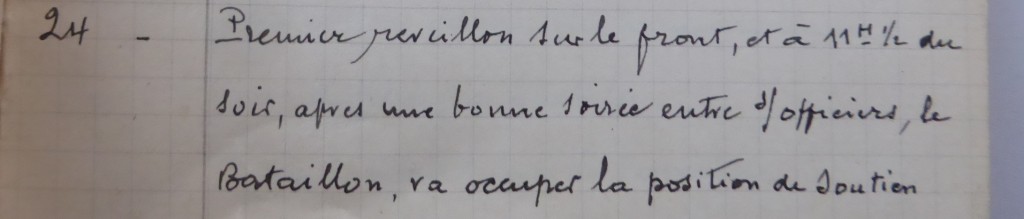 24 - Premier reveillon sur le front, et à 11H 1/2 du
soir, apres une bonne soirée entre s/officiers, le
Bataillon, va occuper la position de soutien